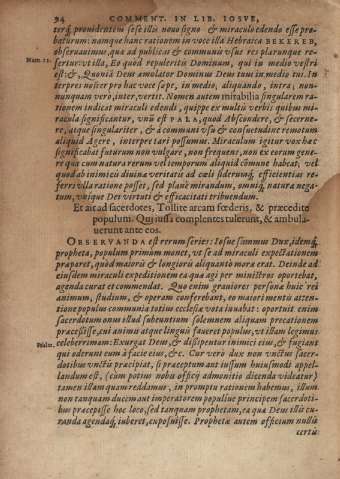 94 COMMENT. IN LIB. IOSVE,
terq́; prouidentem sese illis nouo signo & miraculo edendo esse pro-
baturum: namque hanc rationem in voce illa Hebraica BEKEREB,
obseruauimus, quæ ad publicas & communis vsus res plarunque re-
Num. 11.
fertur: vt illa, Eo quòd repuleritis Dominum, qui in medio vestri
est: &, Quoniã Deus amolator Dominus Deus tuus in medio tui. In
terpres noster pro hac voce sæpe, in medio, aliquando, intra; non-
nunquam verò, inter, vertit. Nomen autem mirabilia singularem ra-
tionem indicat miraculi edendi, quippe ex multis verbis quibus mi-
racula significantur, vnũ est PALA, quod Abscondere, & secerne-
re, atque singulariter, & à communi vsu & consuetudine remotum
aliquid Agere, interpretari possumus. Miraculum igitur vox hæc
significabat futurum non vulgare, non frequens, non ex eorum gene-
re quæ cum natura rerum vel temporum aliquid cõmune habeat, vel
quod ab inimicis diuina veritatis ad cæli siderumq́; efficientias re-
ferri vlla ratione posset, sed planè mirandum, omniq́; natura nega-
tum, vnique Dei virtuti & efficacitati tribuendum.
Et ait ad sacerdotes, Tollite arcam fœderis, & præcedite
populum. Qui iussa complentes tulerunt, & ambula-
uerunt ante eos.
OBSERVANDA est rerum series: Iosue summus Dux, idemq́;
propheta, populum primùm monet, vt se ad miraculi expectationem
præparet, quòd maioris & longioris aliquantò mora erat. Deinde ad
eiusdem miraculi expeditionem ea quæ agi per ministros oportebat,
agenda curat et commendat. Quo enim grauiores personæ huic rei
animum, studium, & operam conferebant, eo maiori mentis atten-
tione populus communia totius ecclesiæ vota iuuabat: oportuit enim
sacerdotum onus illud subeuntium solennem aliquam precationem
præcessisse, cui animis atque linguis faueret populus, vt illam legimus
Psal.
celeberrimam: Exurgat Deus, & dissipentur inimici eius, & fugiant
qui oderunt eum à facie eius, &c. Cur verò dux non vnctus sacer-
dotibus vnctis præcipiat, si præceptum aut iussum huiusmodi appel-
landum est, (cùm potius nobis officij admonitio dicenda videatur)
tamen illam quam reddamus, in promptu rationem habemus, illum
non tanquam ducem aut imperatorem populi principem sacerdoti-
bus præcepisse hoc loco, sed tanquam prophetam, ea quæ Deus illis cu-
randa agendaq́; iuberet, exposuisse. Prophetæ autem officium nullis
certis